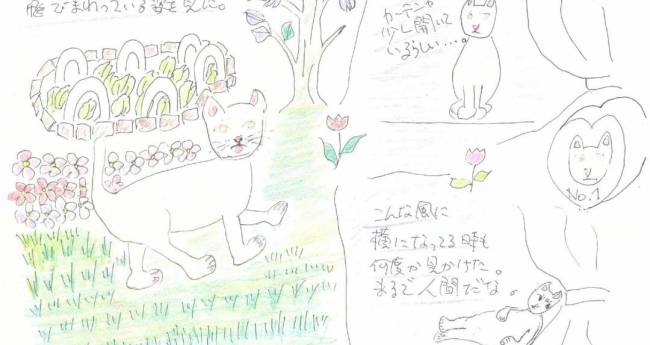 びまわっている姿を見た。
カーテンが
少し開いて
いるらしい…。
No.1
こんな風に
横になってる時も
何度か見かけた。
まるで人間だな